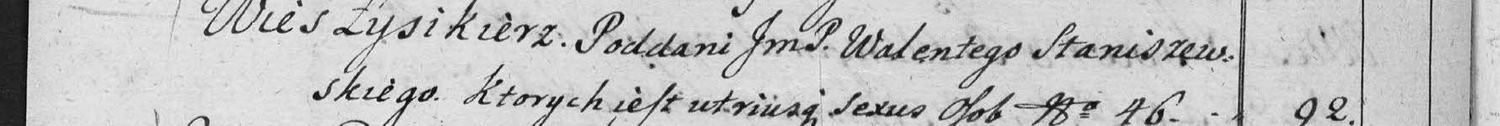 Wieś Łysikierz. Poddani Jm P. Walentego Staniszew:
skiego. Ktorych iest utriusq sexus Osob No 46. - - 92.